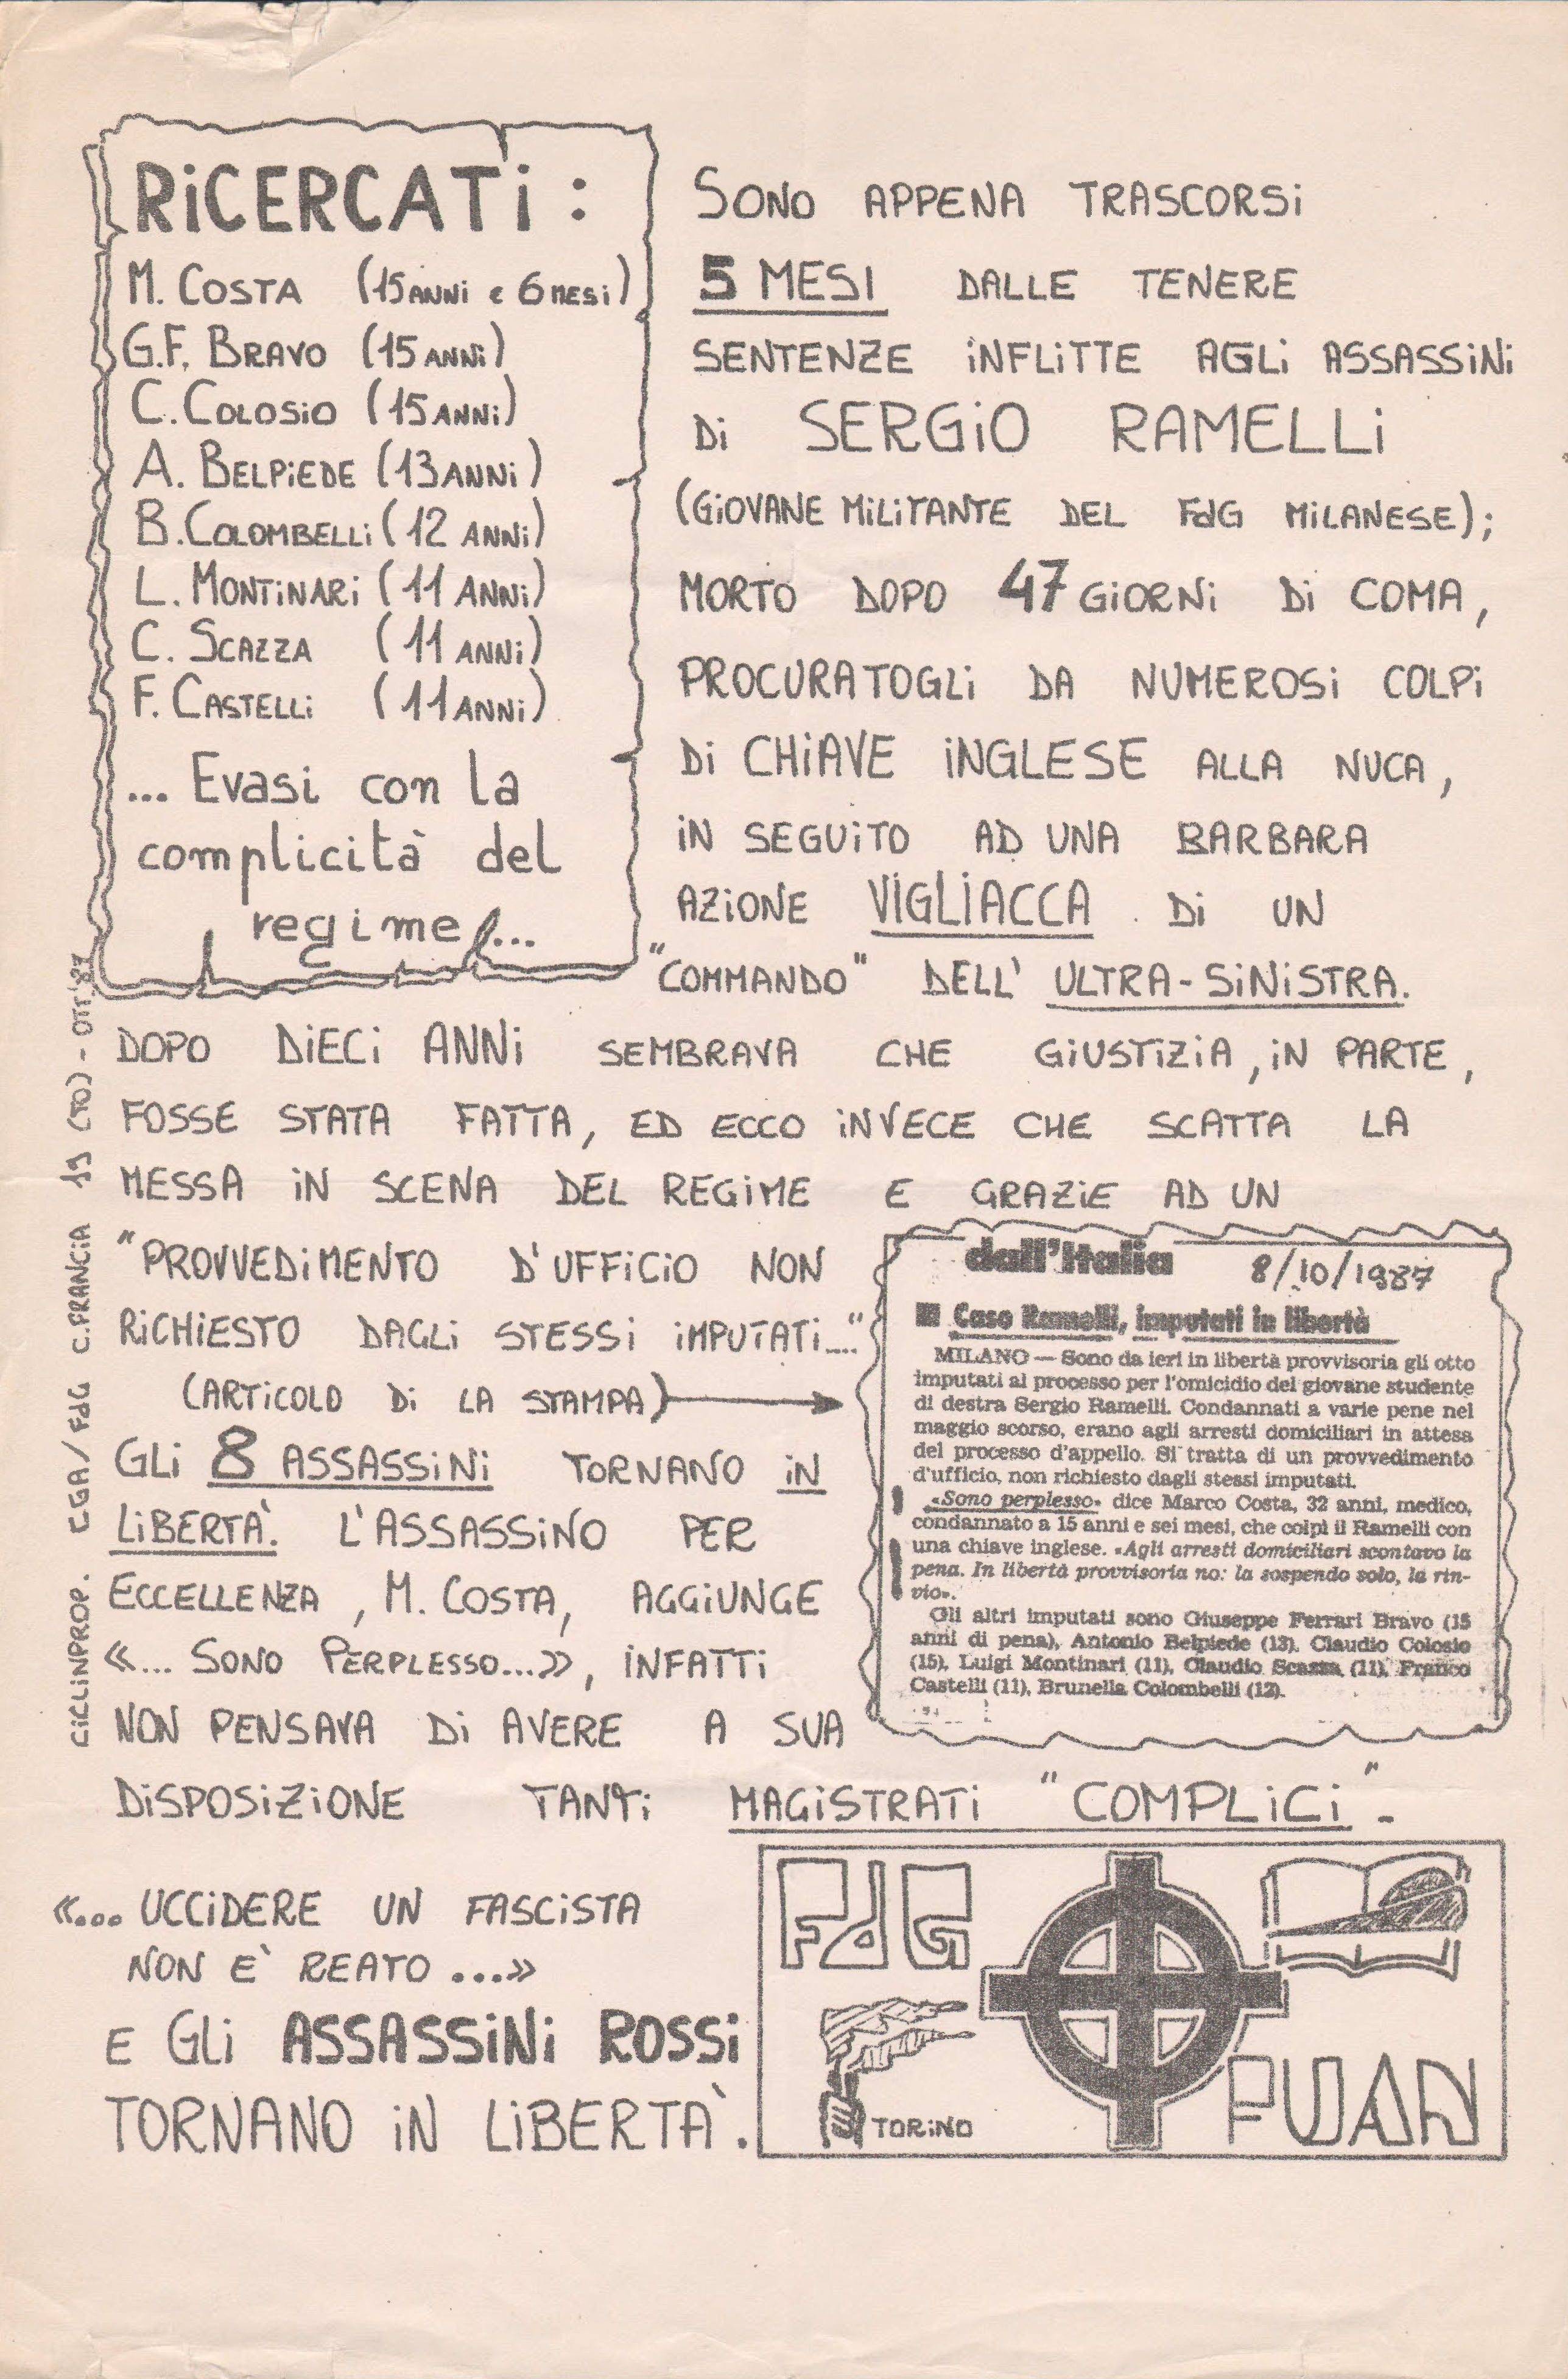 RiCERCATi :
M. COSTA (15 ANNi e 6 MESi)
G.F. BRAVO (15 ANNi)
C. COLOSiO (15 ANNi)
A. BELPiEDE (13 ANNi)
B. COLOMBELLi (12 ANNi)
L. MONTiNARi (11 ANNi)
C. SCAZZA (11 ANNi)
F. CASTELLi (11 ANNi)
... Evasi con la
complicità del
regime...
SONO APPENA TRASCORSi
5 MESI DALLE TENERE
SENTENZE iNFLiTTE AGLi ASSASSiNi
Di SERGiO RAMELLi
(GiOVANE MiLiTANTE DEL FdG MiLANESE);
MORTO DOPO 47 GiORNi Di COMA,
PROCURATOGLi DA NUMEROSi COLPi
Di CHiAVE iNGLESE ALLA NUCA,
iN SEGUiTO AD UNA BARBARA
AZiONE VIGLIACCA Di UN
"COMMANDO" DELL' ULTRA-SiNiSTRA.
DOPO DiECi ANNi SEMBRAVA CHE GiUSTiZiA, iN PARTE,
FOSSE STATA FATTA, ED ECCO iNVECE CHE SCATTA LA
MESSA iN SCENA DEL REGiME E GRAZiE AD UN
"PROVVEDiMENTO D'UFFiCiO NON
RiCHiESTO DAGLi STESSi iMPUTATi...."
(ARTiCOLO Di LA STAMPA)
GLi 8 ASSASSiNi TORNANO iN
LiBERTÀ. L'ASSASSiNO PER
ECCELLENZA, M. COSTA, AGGiUNGE
«... SONO PERPLESSO...», iNFATTi
NON PENSAVA Di AVERE A SUA
DiSPOSiZiONE TANTi MAGiSTRATi "COMPLiCi".
dall'Italia 8/10/1987
Caso Ramelli, imputati in libertà
MILANO — Sono da ieri in libertà provvisoria gli otto
imputati al processo per l'omicidio del giovane studente
di destra Sergio Ramelli. Condannati a varie pene nel
maggio scorso, erano agli arresti domiciliari in attesa
del processo d'appello. Si tratta di un provvedimento
d'ufficio, non richiesto dagli stessi imputati.
«Sono perplesso» dice Marco Costa, 32 anni, medico,
condannato a 15 anni e sei mesi, che colpì il Ramelli con
una chiave inglese. «Agli arresti domiciliari scontavo la
pena. In libertà provvisoria no: la sospendo solo, la rin-
vio».
Gli altri imputati sono Giuseppe Ferrari Bravo (15
anni di pena), Antonio Belpiede (13), Claudio Colosio
(15), Luigi Montinari (11), Claudio Scazza (11), Franco
Castelli (11), Brunella Colombelli (12).
«... UCCiDERE UN FASCiSTA
NON E' REATO ...»
E GLi ASSASSiNi ROSSi
TORNANO iN LiBERTÀ.
FdG
TORiNO
FUAN
CiCLiNPROP. CGA/FdG C.FRANCiA 19 (TO) - OTT. '87